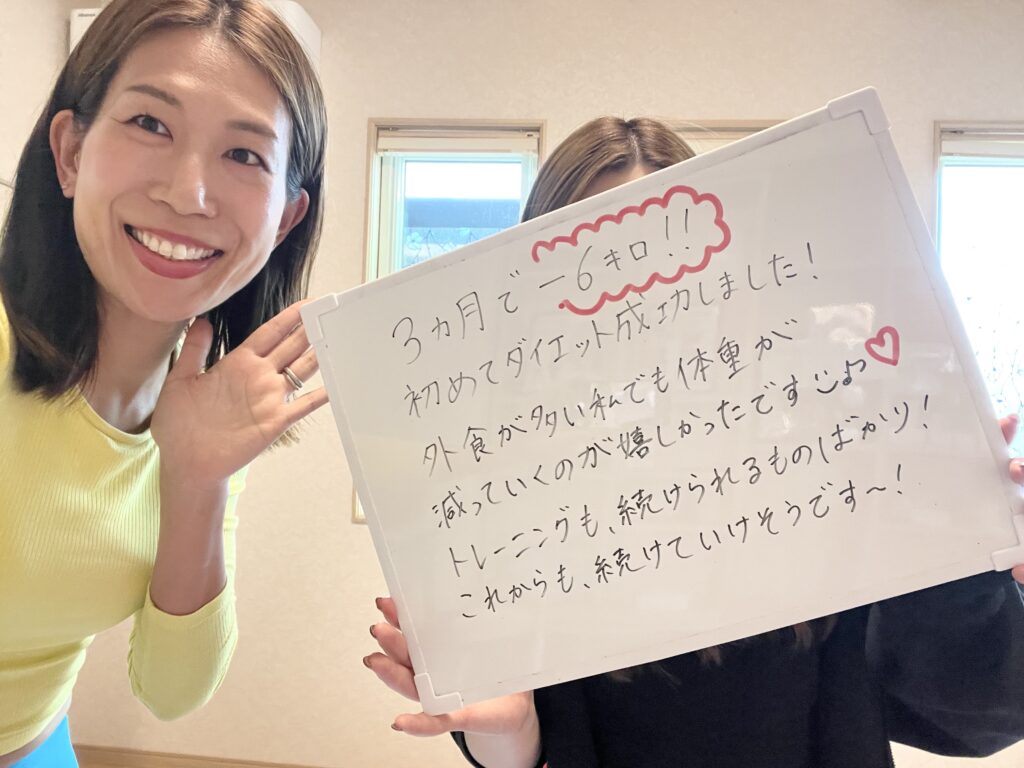 3ヵ月で−6キロ!!
初めてダイエット成功しました!
外食が多い私でも体重が
減っていくのが嬉しかったです♡
トレーニングも、続けられるものばかり!
これからも、続けていけそうです〜!